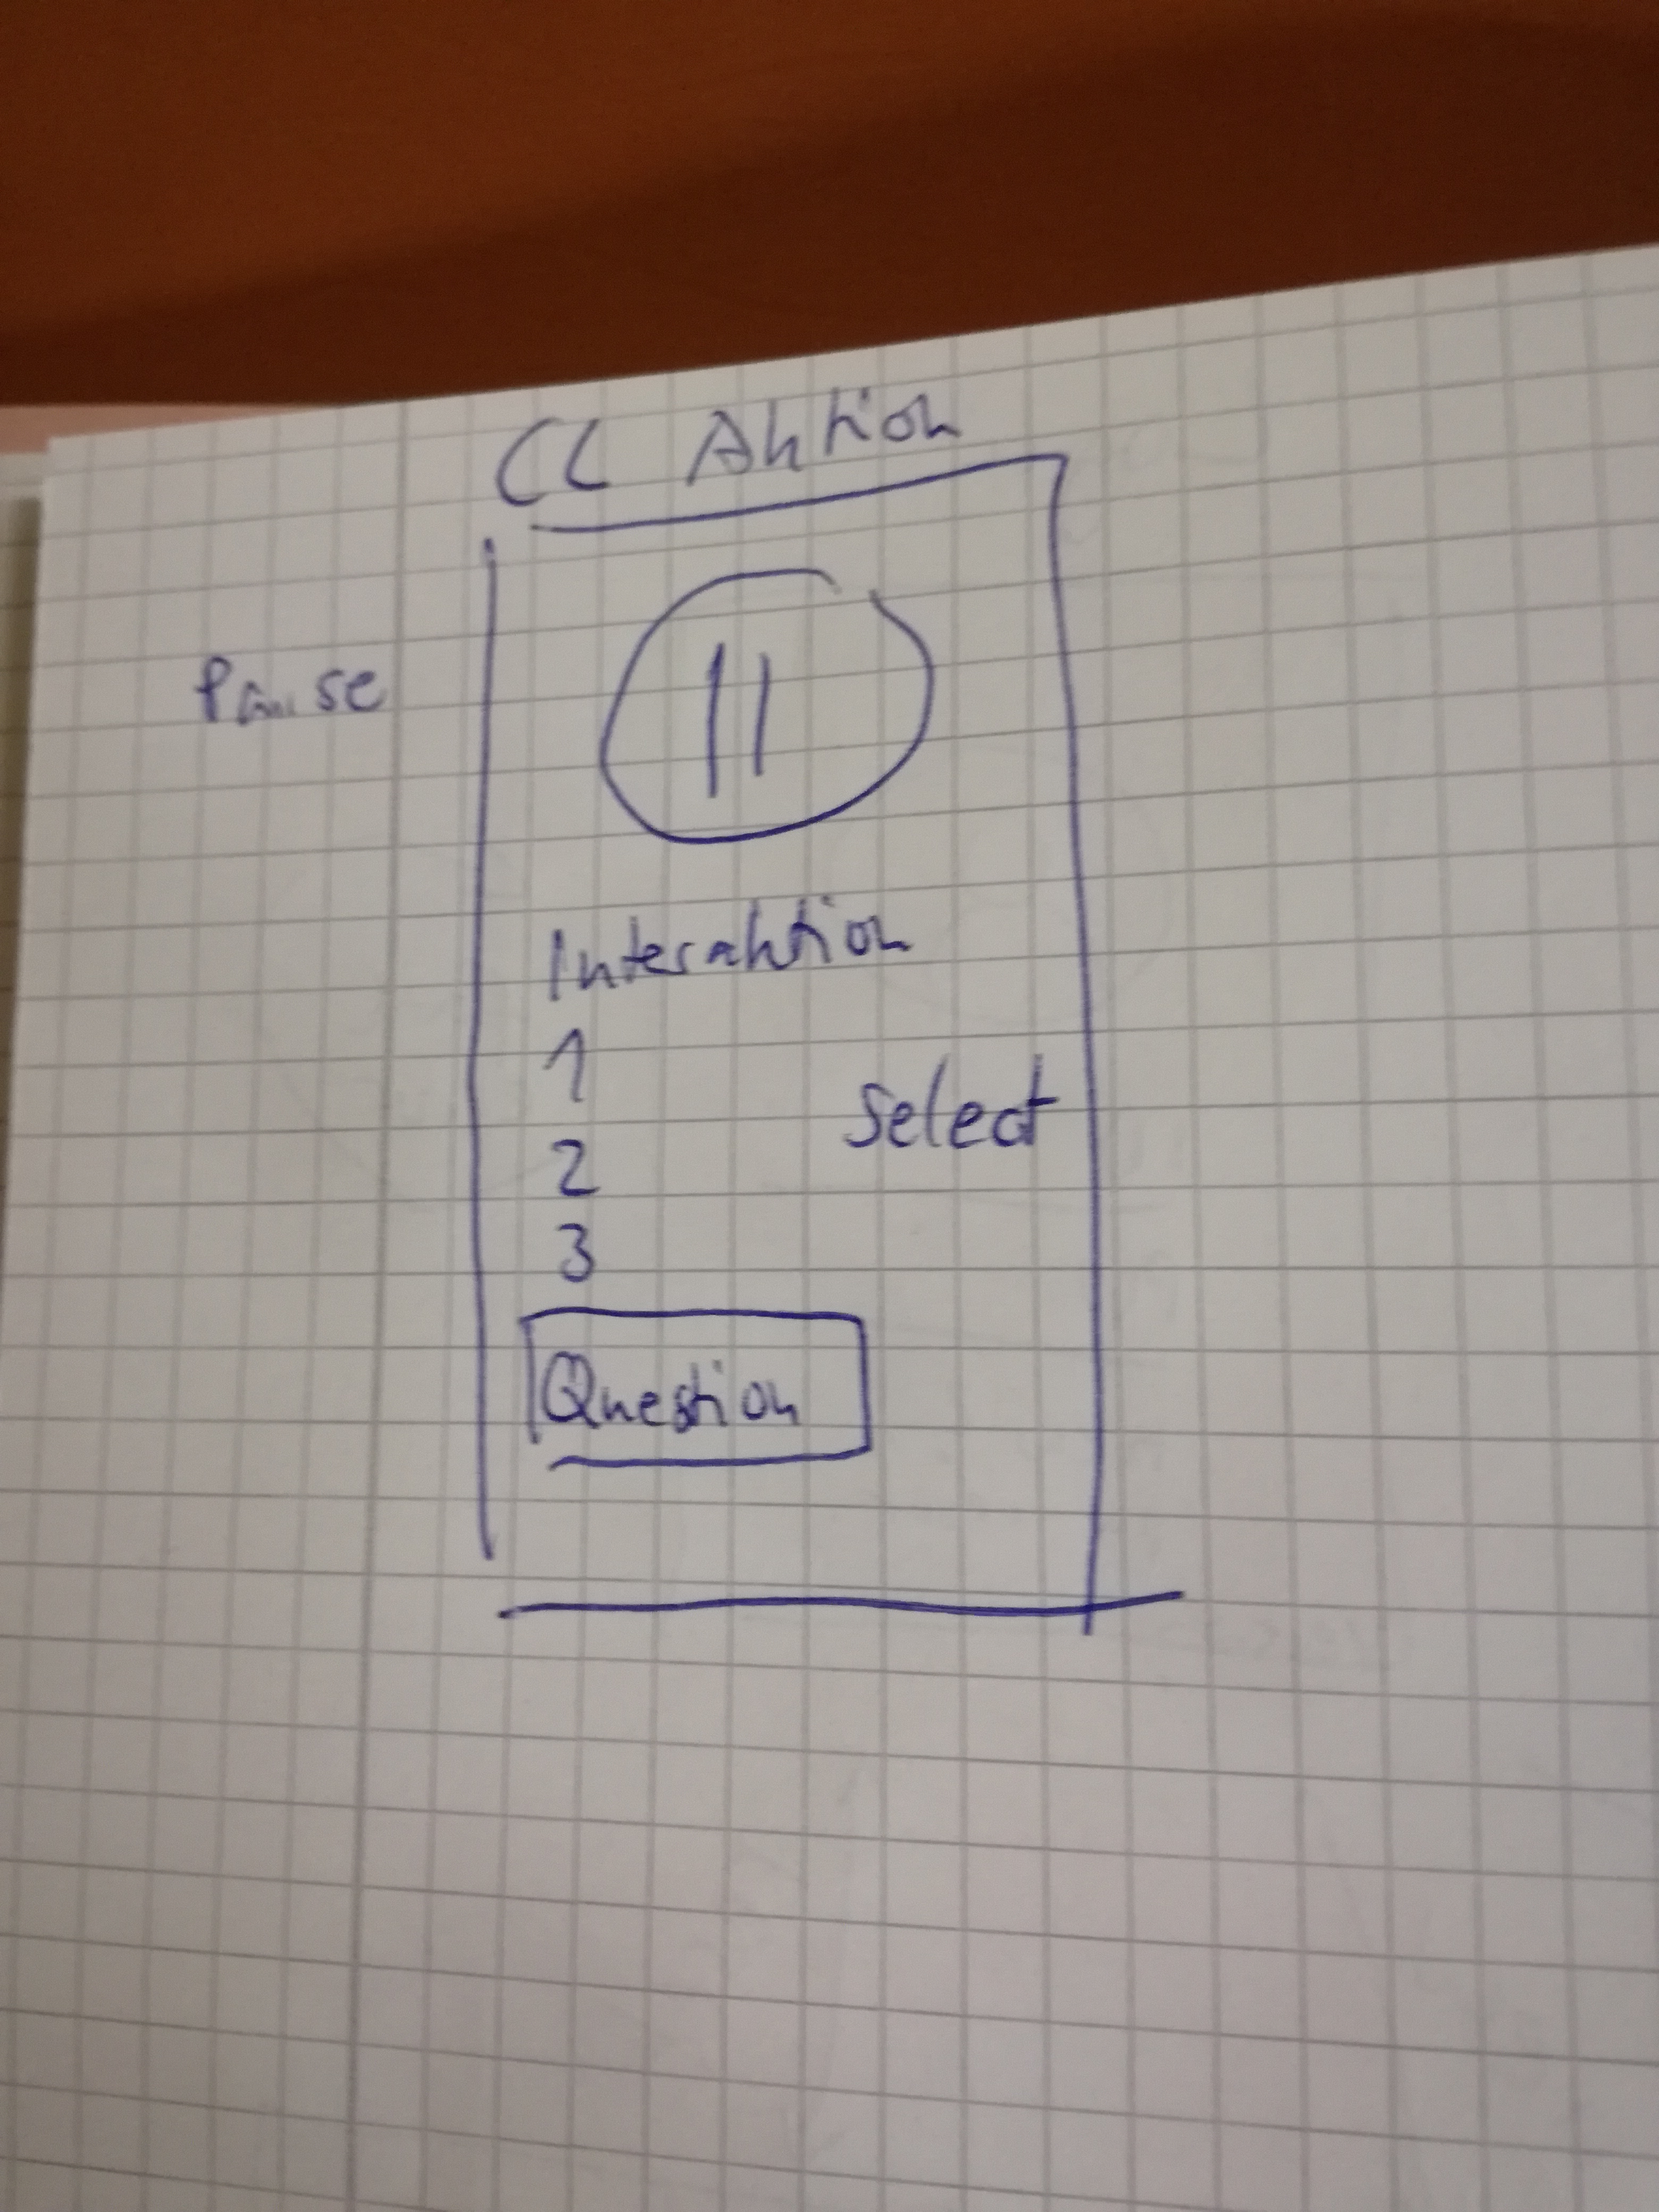 CL Aktion
Pause
Interaktion
1
Select
2
3
Question